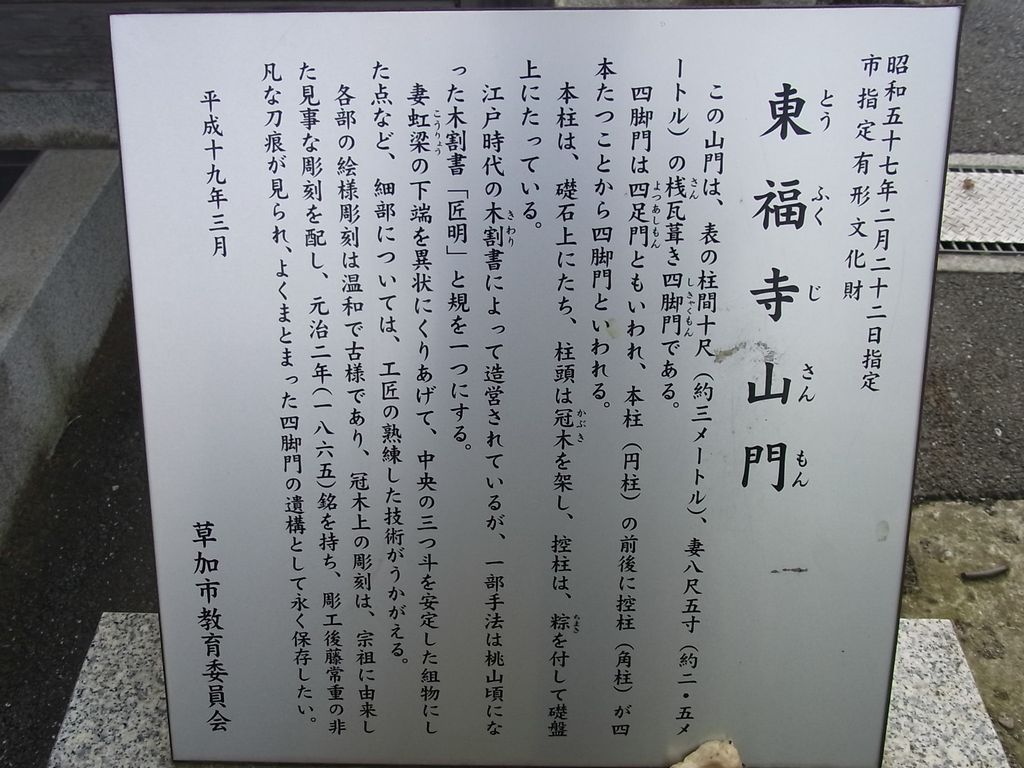 昭和五十七年二月二十二日指定
市指定有形文化財
東福寺山門
とう ふく じ さん もん
この山門は、表の柱間十尺（約三メートル）、妻八尺五寸（約二・五メ
ートル）の桟瓦葺き四脚門である。
さん しきゃくもん
四脚門は四足門ともいわれ、本柱（円柱）の前後に控柱（角柱）が四
よつあしもん
本たつことから四脚門といわれる。
本柱は、礎石上にたち、柱頭は冠木を架し、控柱は、粽を付して礎盤
かぶき ちまき
上にたっている。
江戸時代の木割書によって造営されているが、一部手法は桃山頃にな
きわり
った木割書「匠明」と規を一つにする。
妻虹梁の下端を異状にくりあげて、中央の三つ斗を安定した組物にし
こうりょう
た点など、細部については、工匠の熟練した技術がうかがえる。
各部の絵様彫刻は温和で古様であり、冠木上の彫刻は、宗祖に由来し
た見事な彫刻を配し、元治二年（一八六五）銘を持ち、彫工後藤常重の非
凡な刀痕が見られ、よくまとまった四脚門の遺構として永く保存したい。
平成十九年三月
草加市教育委員会